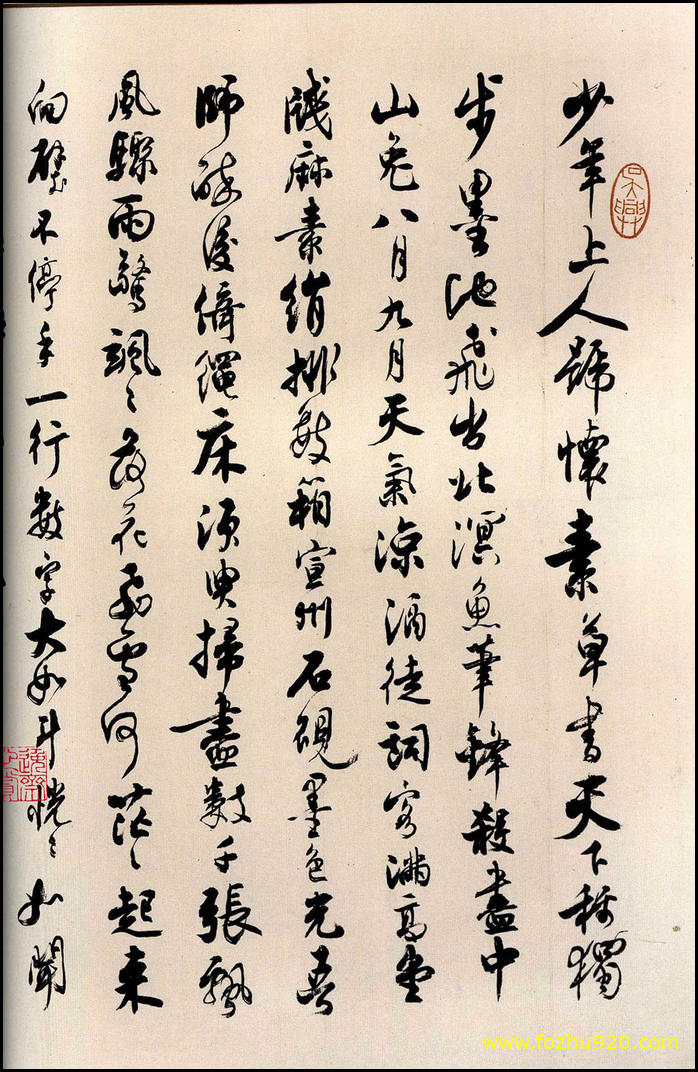 少年上人號懷素草書天下稱獨
步墨池飛出北溟魚筆鋒殺盡中
山兔八月九月天氣涼酒徒詞客滿高堂
牋麻素絹排數箱宣州石硯墨色光吾
師醉後倚繩床須臾掃盡數千張飄
風驟雨驚颯〻落花飛雪何茫〻起來
向壁不停手一行數字大如斗恍〻如聞
吳興
www.fozhu920.com